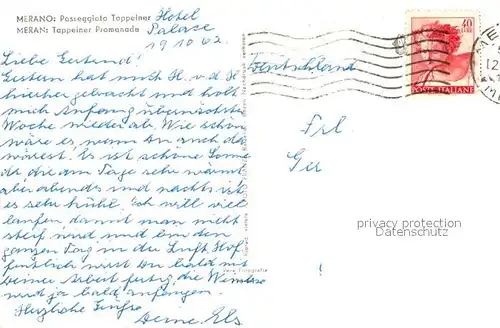 MERANO: Passeggiata Tappeiner
MERAN: Tappeiner Promenade
Hotel
Palace
19 10 62
Liebe Gertrud!
Gestern hat mich H. v. d. H
hierher gebracht und holt
mich Anfang übernächster
Woche wieder ab. Wie schön
wäre es wenn Du auch da
wärest. Es ist schöne Sonne
die am Tage sehr wärmt
aber abends und nachts ist
es sehr kühl. Ich will viel
laufen damit man nicht
steif wird und bin den
ganzen Tag in der Luft. Hof
fentlich wirst Du bald mit
Deiner Arbeit fertig, die
wird ja bald anfangen.
Herzliche Grüße
Deine Els
Deutschland
Frl
Ger
40
POSTE ITALIANE
Vera Fotografia
privacy protection
Datenschutz